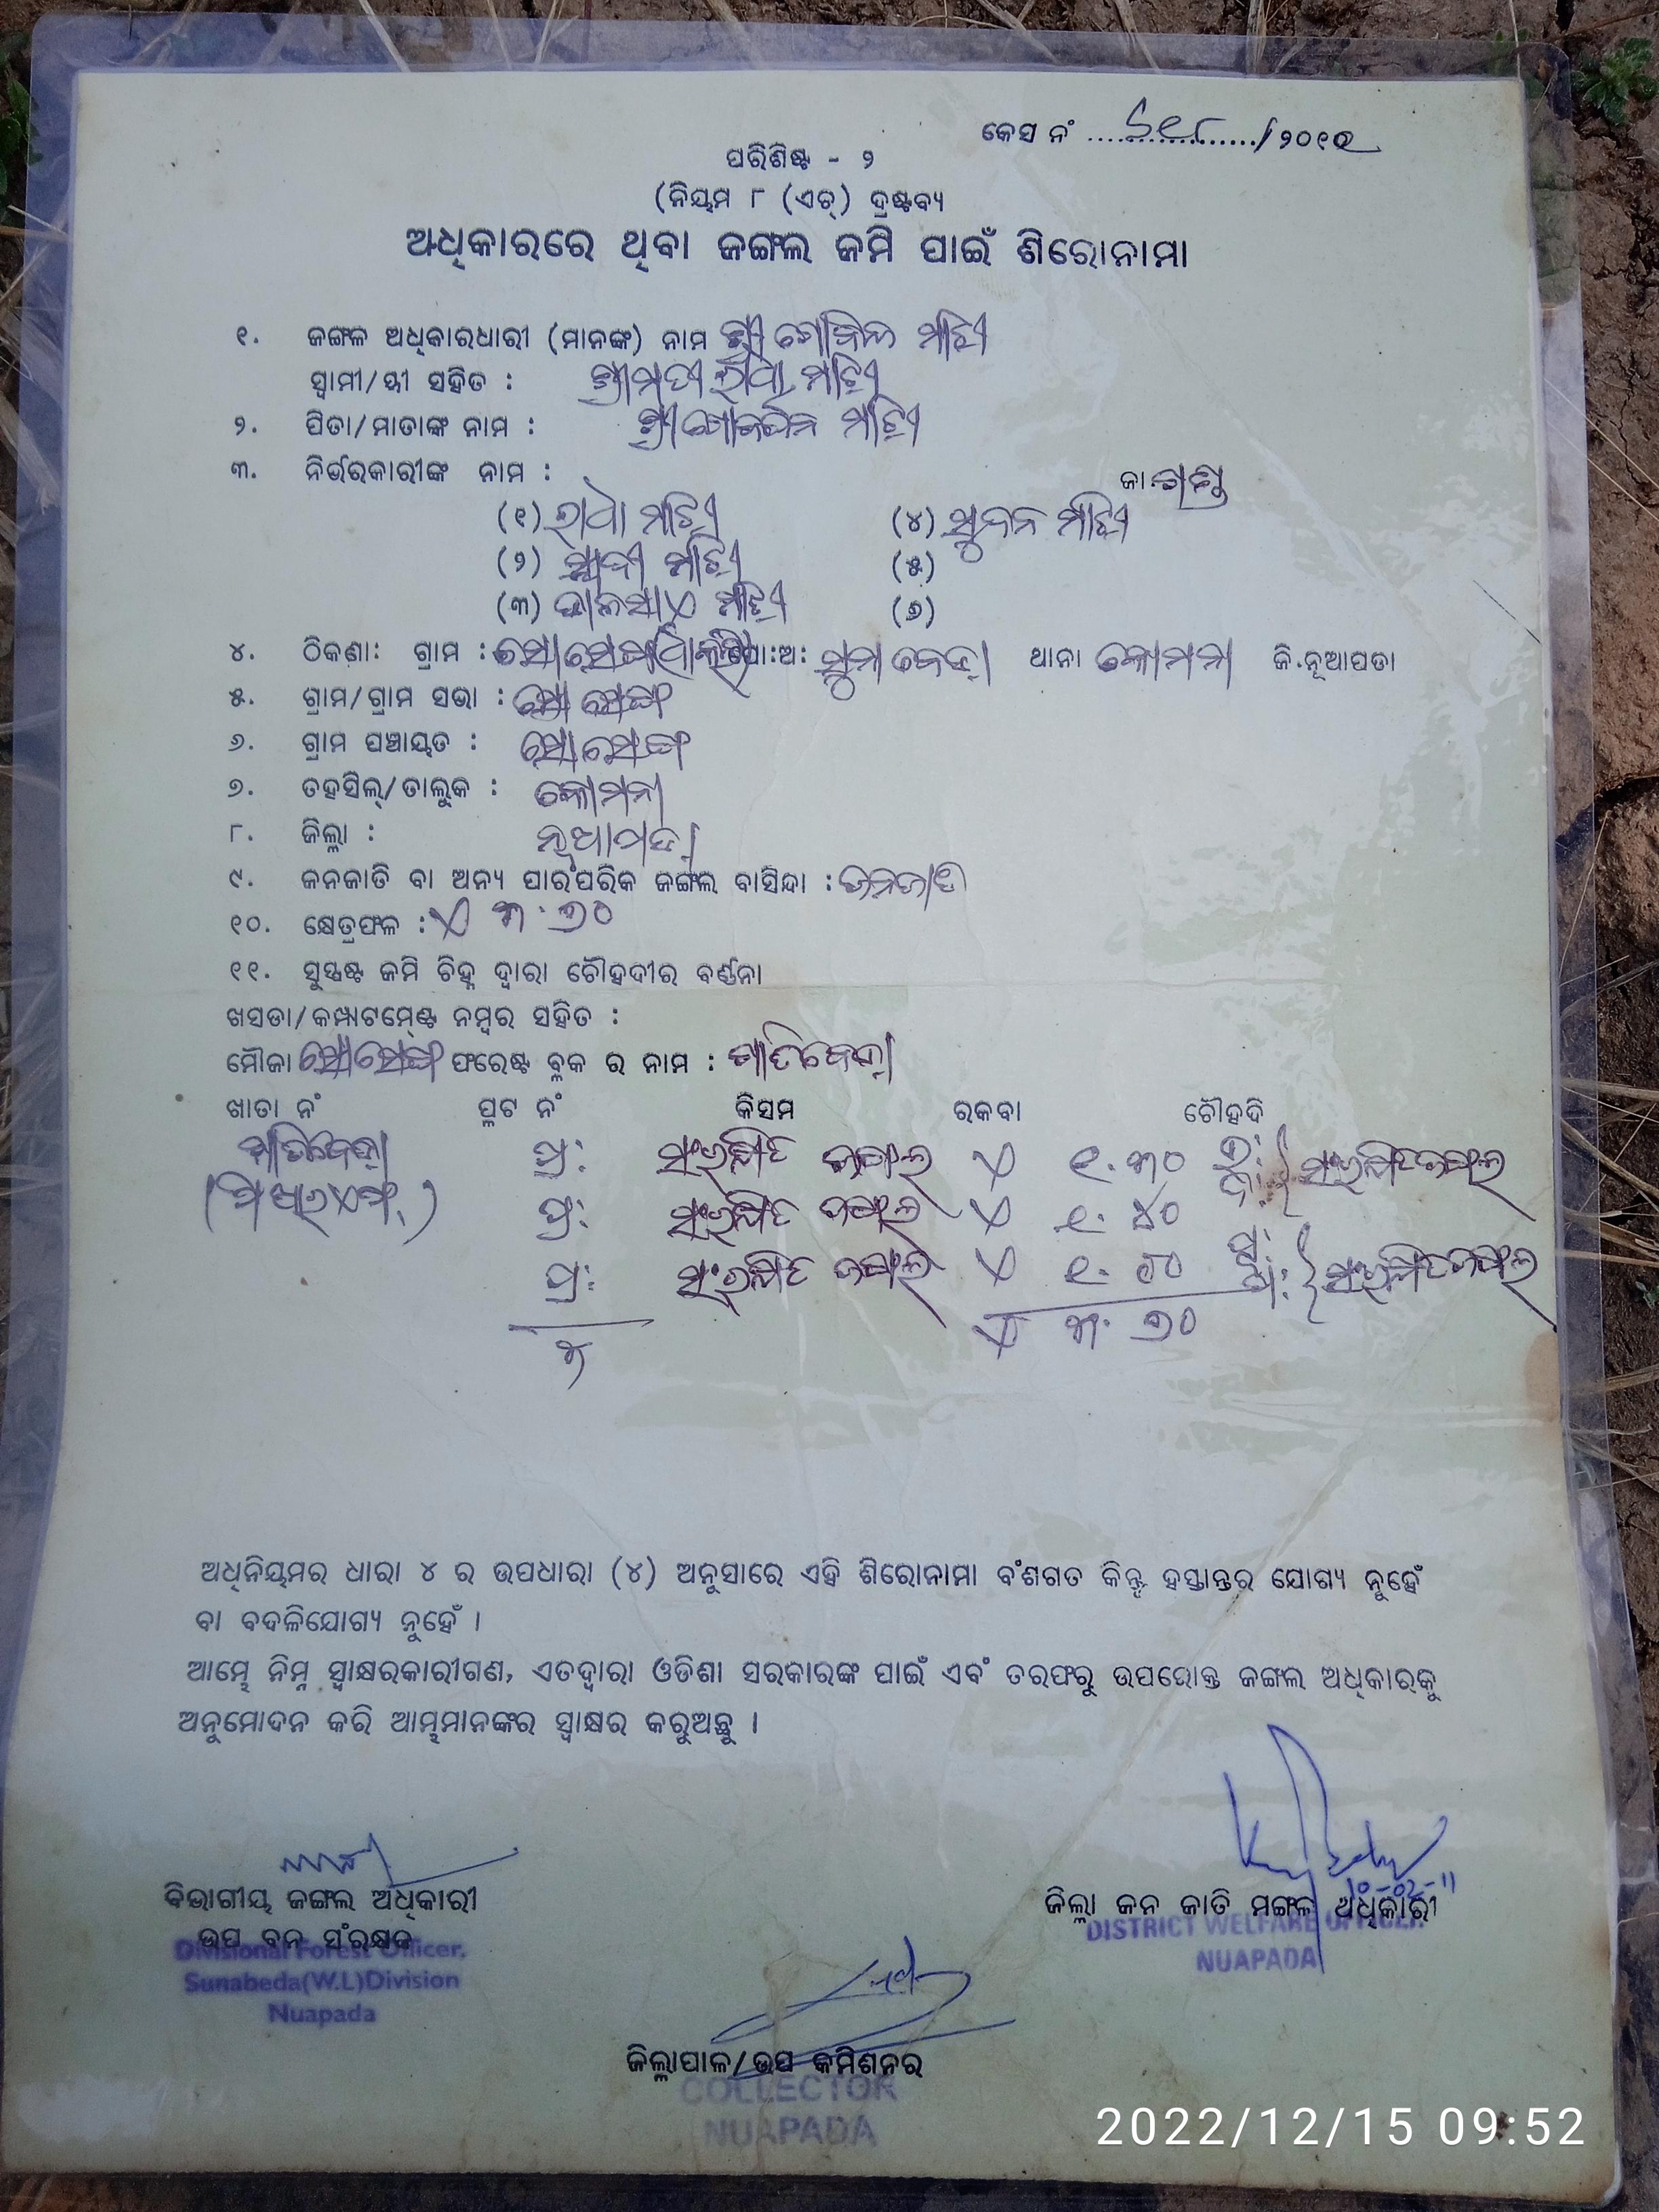 କେସ ନଂ ................../୨୦୧୦
ପରିଶିଷ୍ଟ - ୨
(ନିୟମ ୮ (ଏଚ୍) ଦ୍ରଷ୍ଟବ୍ୟ
ଅଧିକାରରେ ଥିବା ଜଙ୍ଗଲ ଜମି ପାଇଁ ଶିରୋନାମା
୧. ଜଙ୍ଗଳ ଅଧିକାରଧାରୀ (ମାନଙ୍କ) ନାମ ଶ୍ରୀ ଗୋବିନ୍ଦ ମାଝି
ସ୍ୱାମୀ/ସ୍ତ୍ରୀ ସହିତ : ଶ୍ରୀମତୀ ରାଧା ମାଝି
୨. ପିତା/ମାତାଙ୍କ ନାମ : ଶ୍ରୀ ମାଝି
୩. ନିର୍ଭରକାରୀଙ୍କ ନାମ : ଜା.
(୧) ରାଧା ମାଝି (୪) ସୁଦନ ମାଝି
(୨) ମାଝି (୫)
(୩) ମାଝି (୬)
୪. ଠିକଣା: ଗ୍ରାମ : ପୋ:ଅ: ସୁନାବେଡ଼ା ଥାନା କୋମନା ଜି.ନୂଆପଡା
୫. ଗ୍ରାମ/ଗ୍ରାମ ସଭା : ସୋସେଙ୍ଗ
୬. ଗ୍ରାମ ପଞ୍ଚାୟତ : ସୋସେଙ୍ଗ
୭. ତହସିଲ୍/ତାଲୁକ : କୋମନା
୮. ଜିଲ୍ଲା : ନୂଆପଡ଼ା
୯. ଜନଜାତି ବା ଅନ୍ୟ ପାରଂପରିକ ଜଙ୍ଗଲ ବାସିନ୍ଦା : ଜନଜାତି
୧୦. କ୍ଷେତ୍ରଫଳ : ଏ ୩.୭୦
୧୧. ସୁସ୍ପଷ୍ଟ ଜମି ଚିହ୍ନ ଦ୍ୱାରା ଚୌହଦୀର ବର୍ଣ୍ଣନା
ଖସଡା/କମ୍ପାଟମେଣ୍ଟ ନମ୍ବର ସହିତ :
ମୌଜା ସୋସେଙ୍ଗ ଫରେଷ୍ଟ ବ୍ଲକ ର ନାମ : ପାତିବେଡ଼ା
ଖାତା ନଂ ପ୍ଲଟ ନଂ କିସମ ରକବା ଚୌହଦି
ପାତିବେଡ଼ା ପ୍ର: ସଂରକ୍ଷିତ ଜଙ୍ଗଲ ଏ ୧.୩୦ ଉ: ସଂରକ୍ଷିତ ଜଙ୍ଗଲ
ପ୍ର: ସଂରକ୍ଷିତ ଜଙ୍ଗଲ ଏ ୧.୪୦ ଦ:
ପ୍ର: ସଂରକ୍ଷିତ ଜଙ୍ଗଲ ଏ ୧.୦୦ ପୂ: ପ: ସଂରକ୍ଷିତ ଜଙ୍ଗଲ
୩ ଏ ୩.୭୦
ଅଧିନିୟମର ଧାରା ୪ ର ଉପଧାରା (୪) ଅନୁସାରେ ଏହି ଶିରୋନାମା ବଂଶଗତ କିନ୍ତୁ ହସ୍ତାନ୍ତର ଯୋଗ୍ୟ ନୁହେଁ
ବା ବଦଳିଯୋଗ୍ୟ ନୁହେଁ ।
ଆମ୍ଭେ ନିମ୍ନ ସ୍ୱାକ୍ଷରକାରୀଗଣ, ଏତଦ୍ୱାରା ଓଡିଶା ସରକାରଙ୍କ ପାଇଁ ଏବଂ ତରଫରୁ ଉପରୋକ୍ତ ଜଙ୍ଗଲ ଅଧିକାରକୁ
ଅନୁମୋଦନ କରି ଆମ୍ଭମାନଙ୍କର ସ୍ୱାକ୍ଷର କରୁଅଛୁ ।
10-02-11
ବିଭାଗୀୟ ଜଙ୍ଗଲ ଅଧିକାରୀ
ଉପ ବନ ସଂରକ୍ଷକ
Divisional Forest Officer.
Sunabeda(W.L)Division
Nuapada
ଜିଲ୍ଲା ଜନ ଜାତି ମଙ୍ଗଳ ଅଧିକାରୀ
DISTRICT WELFARE OFFICER
NUAPADA
ଜିଲ୍ଲାପାଳ/ଉପ କମିଶନର
COLLECTOR
NUAPADA
2022/12/15 09:52